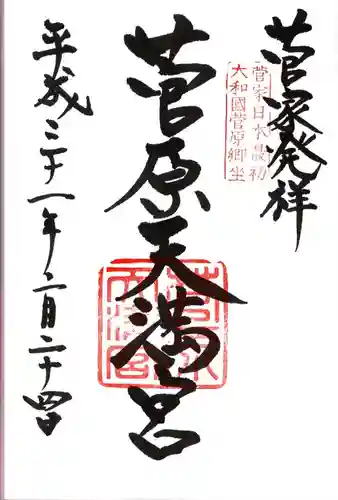 菅家発祥
菅家日本最初
大和國菅原郷坐
菅原天満宮
菅原
天満宮
平成二十一年二月二十四日